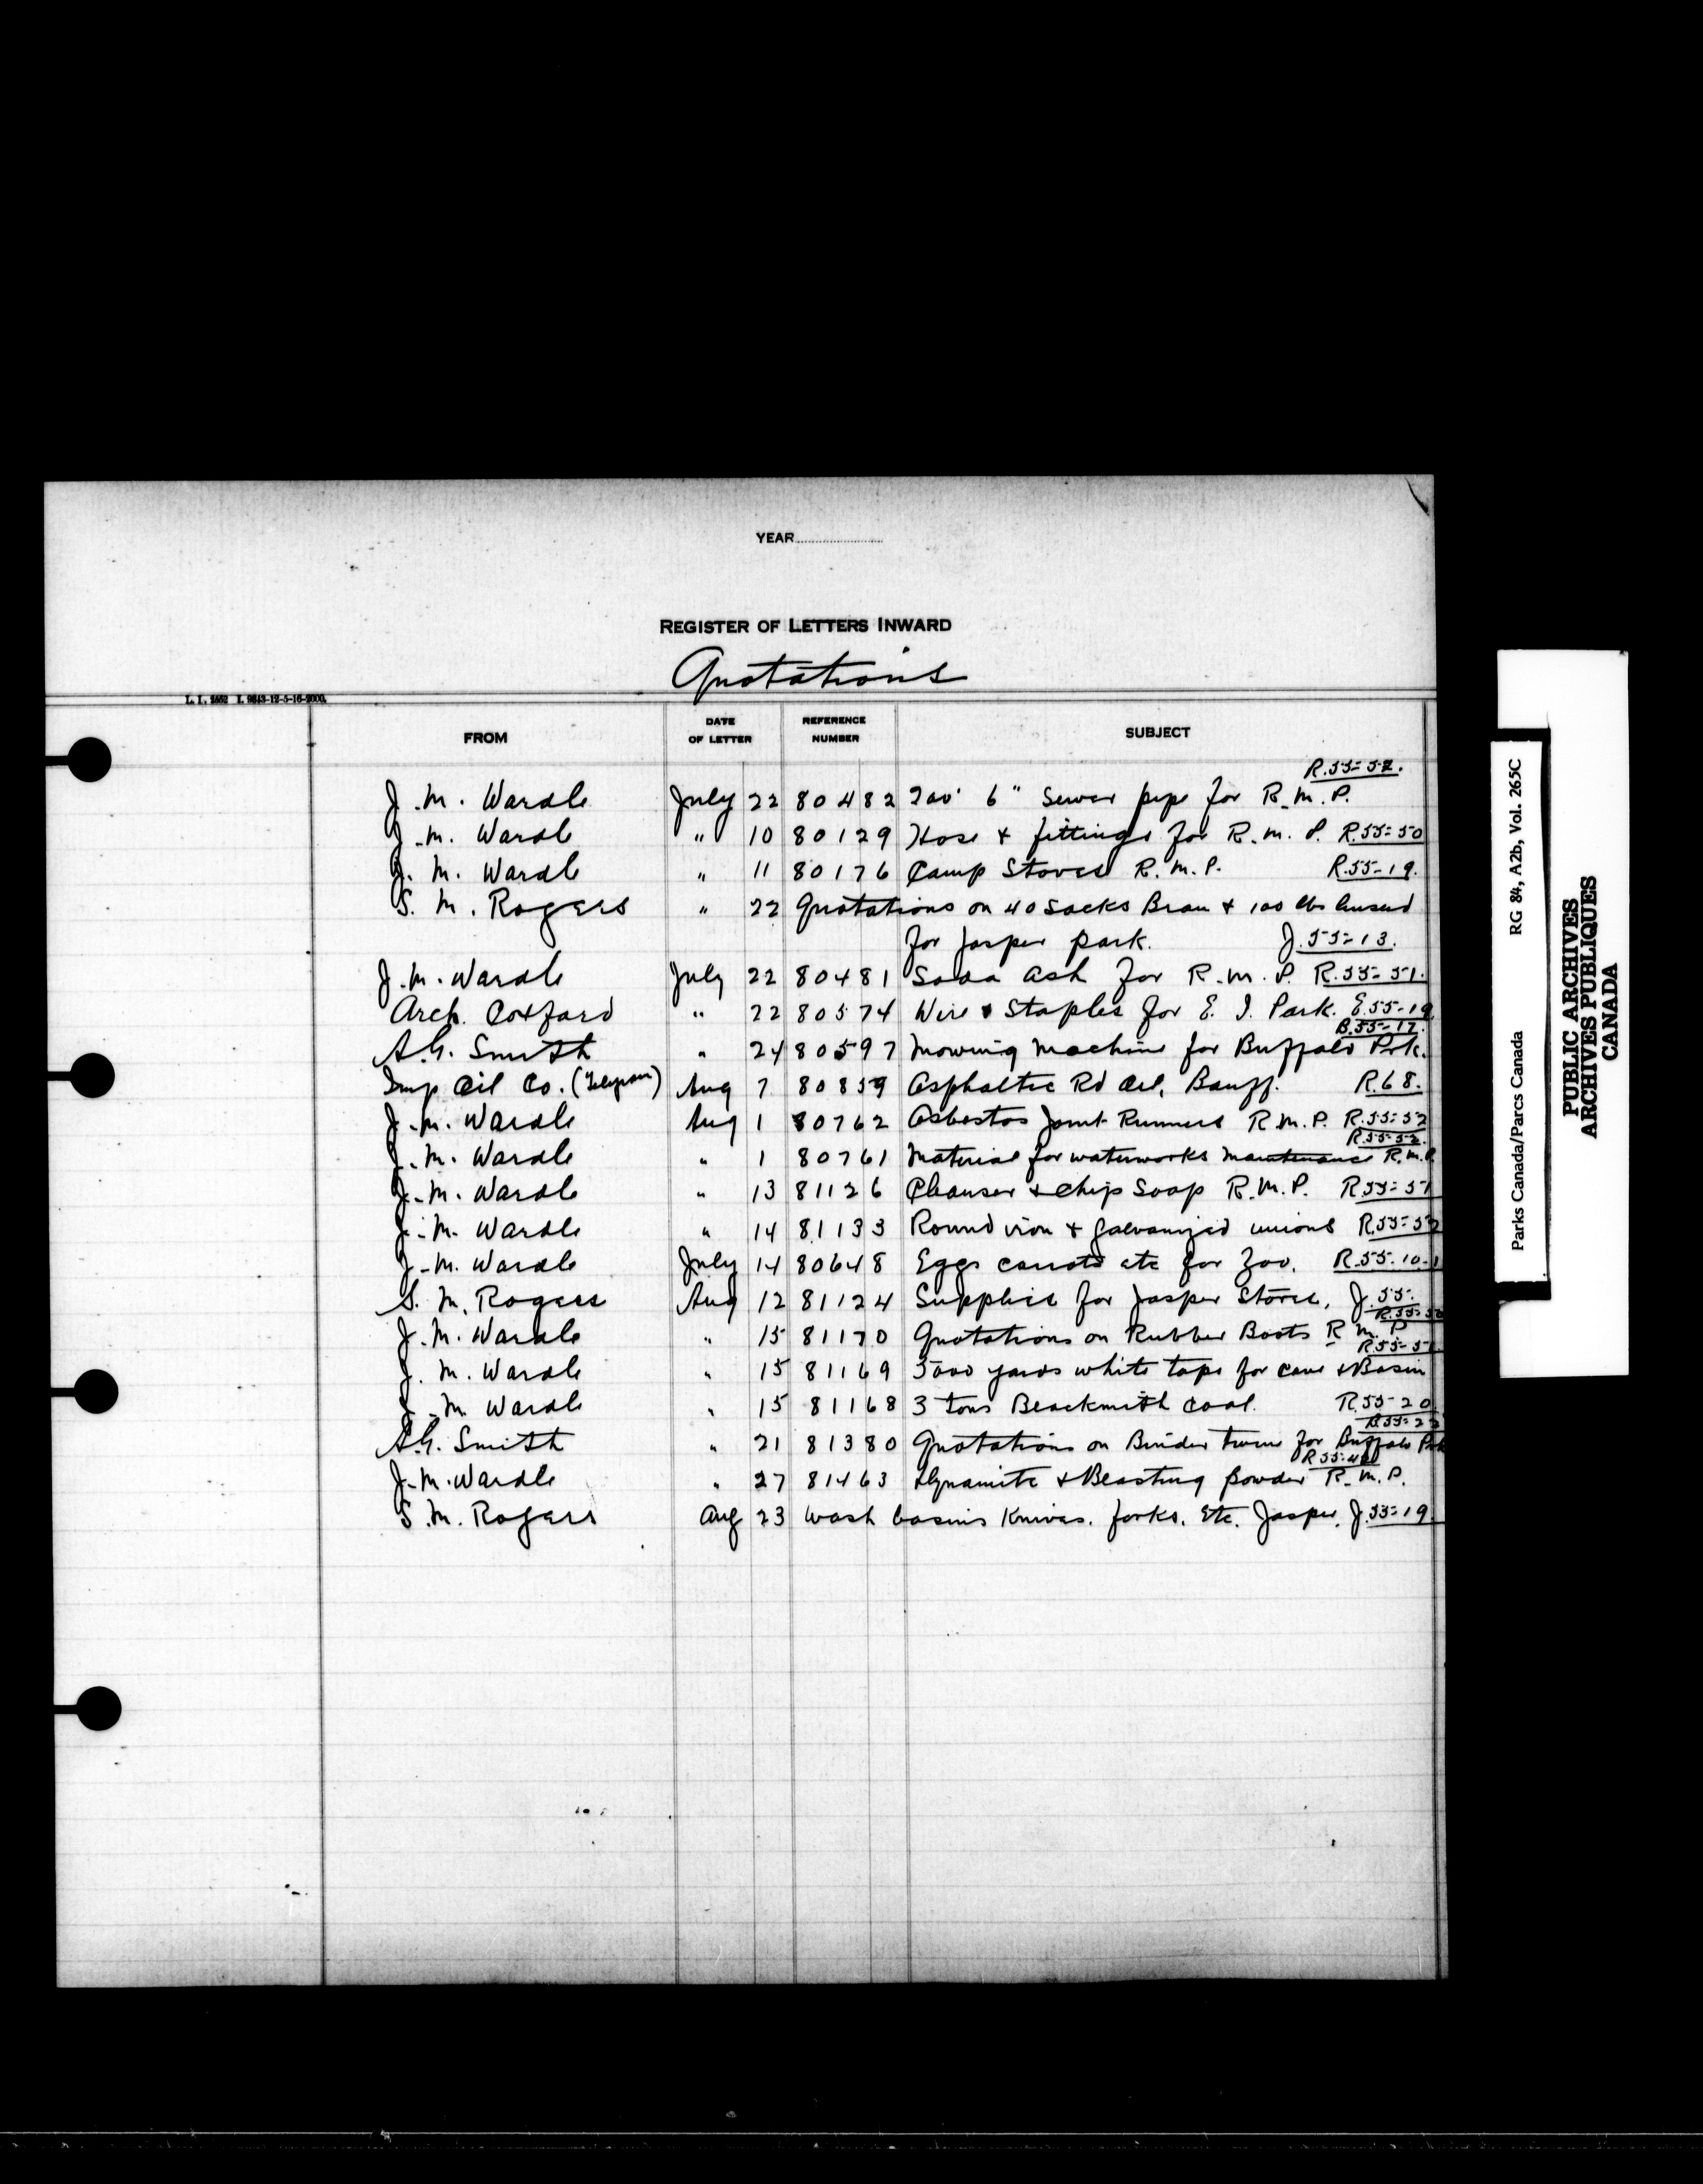 YEAR
REGISTER OF LETTERS INWARD
Quotations
L. I. 1552 I. 9843-12-5-16-2000.
FROM DATE OF LETTER REFERENCE NUMBER SUBJECT
R.55-52.
J.M. Wardle July 22 80482 200' 6" Sewer pipe for R.M.P.
J.M. Wardle " 10 80129 Hose & fittings for R.M.P. R.55-50
J.M. Wardle " 11 80176 Camp Stoves R.M.P. R.55-19.
S.M. Rogers " 22 Quotations on 40 Sacks Bran & 100 lbs linseed
for Jasper park. J.55-13.
J.M. Wardle July 22 80481 Soda ash for R.M.P. R.55-51.
Arch. Coxford " 22 80574 Wire & Staples for E. I. Park. E.55-19
B.55-17.
A.G. Smith " 24 80597 Mowing Machine for Buffalo Prk.
Imp Oil Co. (Telegram) Aug 7 80859 Asphaltic Rd Oil, Banff. R.68.
J.M. Wardle Aug 1 80762 Asbestos Joint Runners R.M.P. R.55-52
R.55-52.
J.M. Wardle " 1 80761 Material for waterworks maintenance R.M.P.
J.M. Wardle " 13 81126 Cleanser & Chip Soap R.M.P. R.55-51
J.M. Wardle " 14 81133 Round iron & galvanized unions R.55-52
J.M. Wardle July 14 80648 Eggs carrots etc for Zoo. R.55-10-1
S.M. Rogers Aug 12 81124 Supplies for Jasper Stores, J.55.
R.55-50
J.M. Wardle " 15 81170 Quotations on Rubber Boots R.M.P
R.55-51
J.M. Wardle " 15 81169 5000 yards white tape for cave & Basin
J.M. Wardle " 15 81168 3 tons Blacksmith Coal. R.55-20
B.55-22
A.G. Smith " 21 81380 Quotations on Binder twine for Buffalo Prk
R.55-40
J.M. Wardle " 27 81463 Dynamite & Blasting powder R.M.P.
S.M. Rogers Aug 23 Wash basins Knives. forks. Etc. Jasper. J.55-19
Parks Canada/Parcs Canada RG 84, A2b, Vol. 265C
PUBLIC ARCHIVES
ARCHIVES PUBLIQUES
CANADA